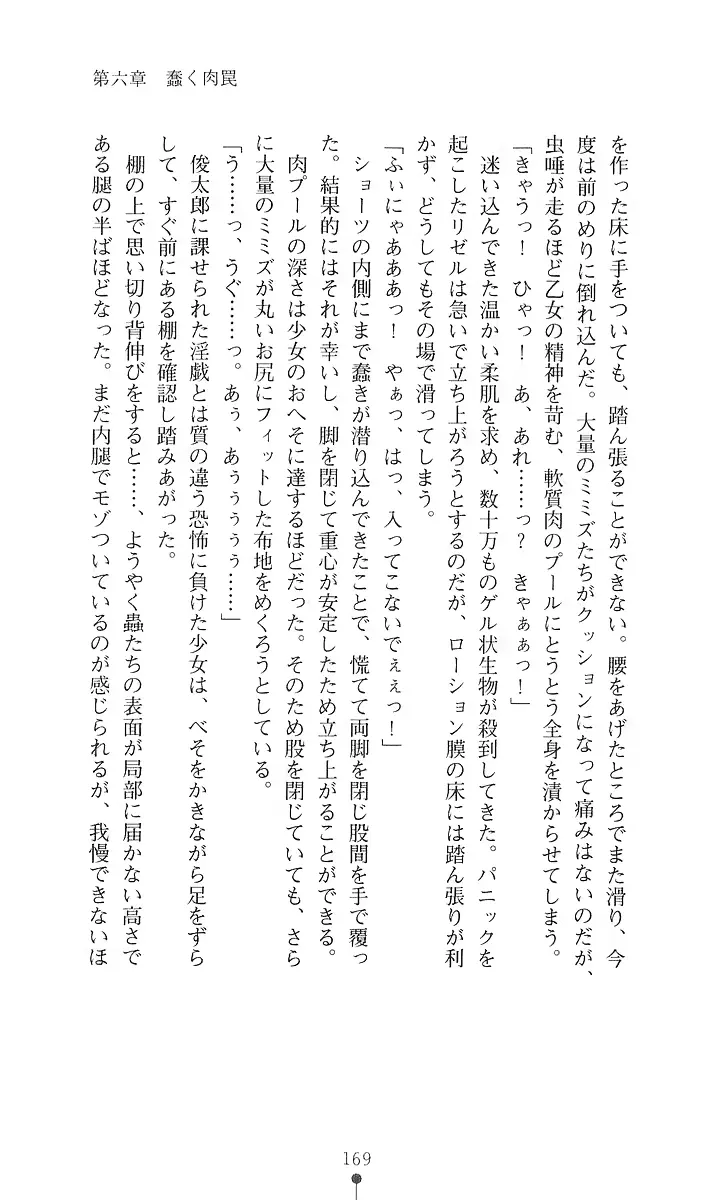 第六章　蠢く肉罠
を作った床に手をついても、踏ん張ることができない。腰をあげたところでまた滑り、今
度は前のめりに倒れ込んだ。大量のミミズたちがクッションになって痛みはないのだが、
虫唾が走るほど乙女の精神を苛む、軟質肉のプールにとうとう全身を漬からせてしまう。
「きゃうっ！　ひゃっ！　あ、あれ……っ？　きゃぁぁっ！」
迷い込んできた温かい柔肌を求め、数十万ものゲル状生物が殺到してきた。パニックを
起こしたリゼルは急いで立ち上がろうとするのだが、ローション膜の床には踏ん張りが利
かず、どうしてもその場で滑ってしまう。
「ふぃにゃあああっ！　やぁっ、はっ、入ってこないでぇぇっ！」
ショーツの内側にまで蠢きが潜り込んできたことで、慌てて両脚を閉じ股間を手で覆っ
た。結果的にはそれが幸いし、脚を閉じて重心が安定したため立ち上がることができる。
肉プールの深さは少女のおへそに達するほどだった。そのため股を閉じていても、さら
に大量のミミズが丸いお尻にフィットした布地をめくろうとしている。
「う……っ、うぐ……っ。あぅ、あぅぅぅぅ……」
俊太郎に課せられた淫戯とは質の違う恐怖に負けた少女は、べそをかきながら足をずら
して、すぐ前にある棚を確認し踏みあがった。
棚の上で思い切り背伸びをすると……、ようやく蟲たちの表面が局部に届かない高さで
ある腿の半ばほどなった。まだ内腿でモゾついているのが感じられるが、我慢できないほ
169